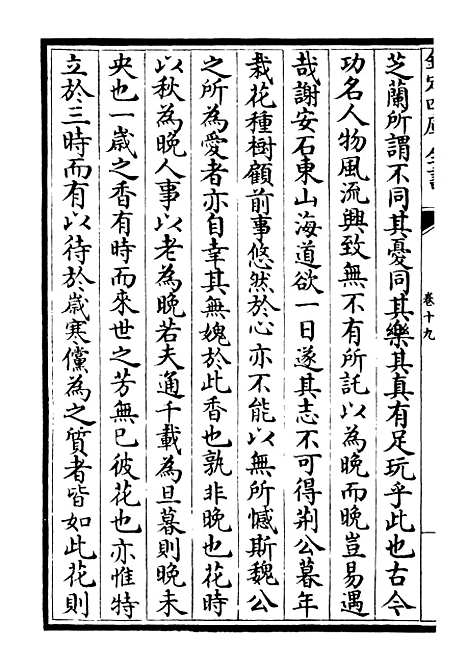 卷十九
芝蘭所謂不同其憂同其樂其真有足玩乎此也古今
功名人物風流興致無不有所託以為晚而晚豈易遇
哉謝安石東山海道欲一日遂其志不可得荆公暮年
栽花種樹顧前事悠然於心亦不能以無所憾斯魏公
之所為愛者亦自幸其無媿於此香也孰非晚也花時
以秋為晚人事以老為晚若夫通千載為旦暮則晚未
央也一歲之香有時而來世之芳無已彼花也亦惟特
立於三時而有以待於歲寒儻為之質者皆如此花則